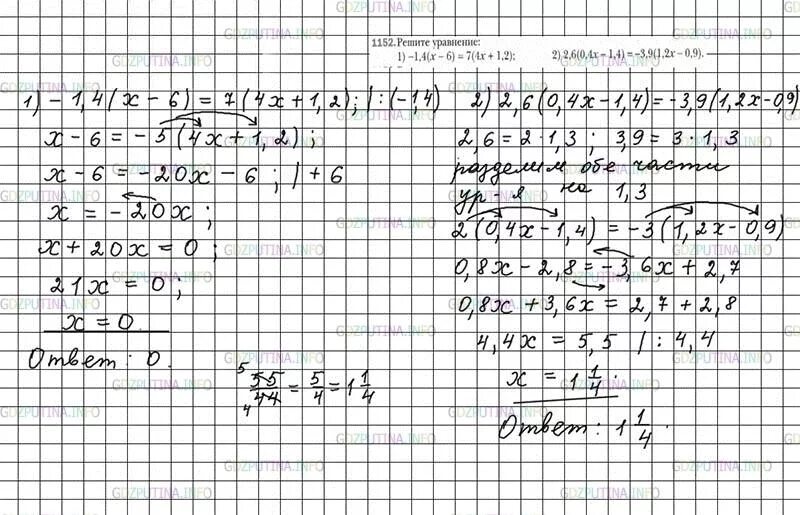 GDZPUTINA.INFO
1152. Решите уравнение:
1) −1,4(x − 6) = 7(4x + 1,2);
2) 2,6(0,4x − 1,4) = −3,9(1,2x − 0,9).
1) − 1,4 (x − 6) = 7 (4x + 1,2); | : (−1,4)
x − 6 = − 5 (4x + 1,2);
x − 6 = − 20x − 6 ; | + 6
x = − 20x ;
x + 20x = 0 ;
21x = 0 ;
x = 0
Ответ : 0.
5 55/44 4 = 5/4 = 1 1/4
2) 2,6 (0,4x − 1,4) = −3,9 (1,2x − 0,9)
2,6 = 2 · 1,3 ; 3,9 = 3 · 1,3
разделим обе части
ур - я на 1,3
2 (0,4x − 1,4) = −3 (1,2x − 0,9)
0,8x − 2,8 = − 3,6x + 2,7
0,8x + 3,6x = 2,7 + 2,8
4,4x = 5,5 | : 4,4
x = 1 1/4 .
Ответ : 1 1/4 .